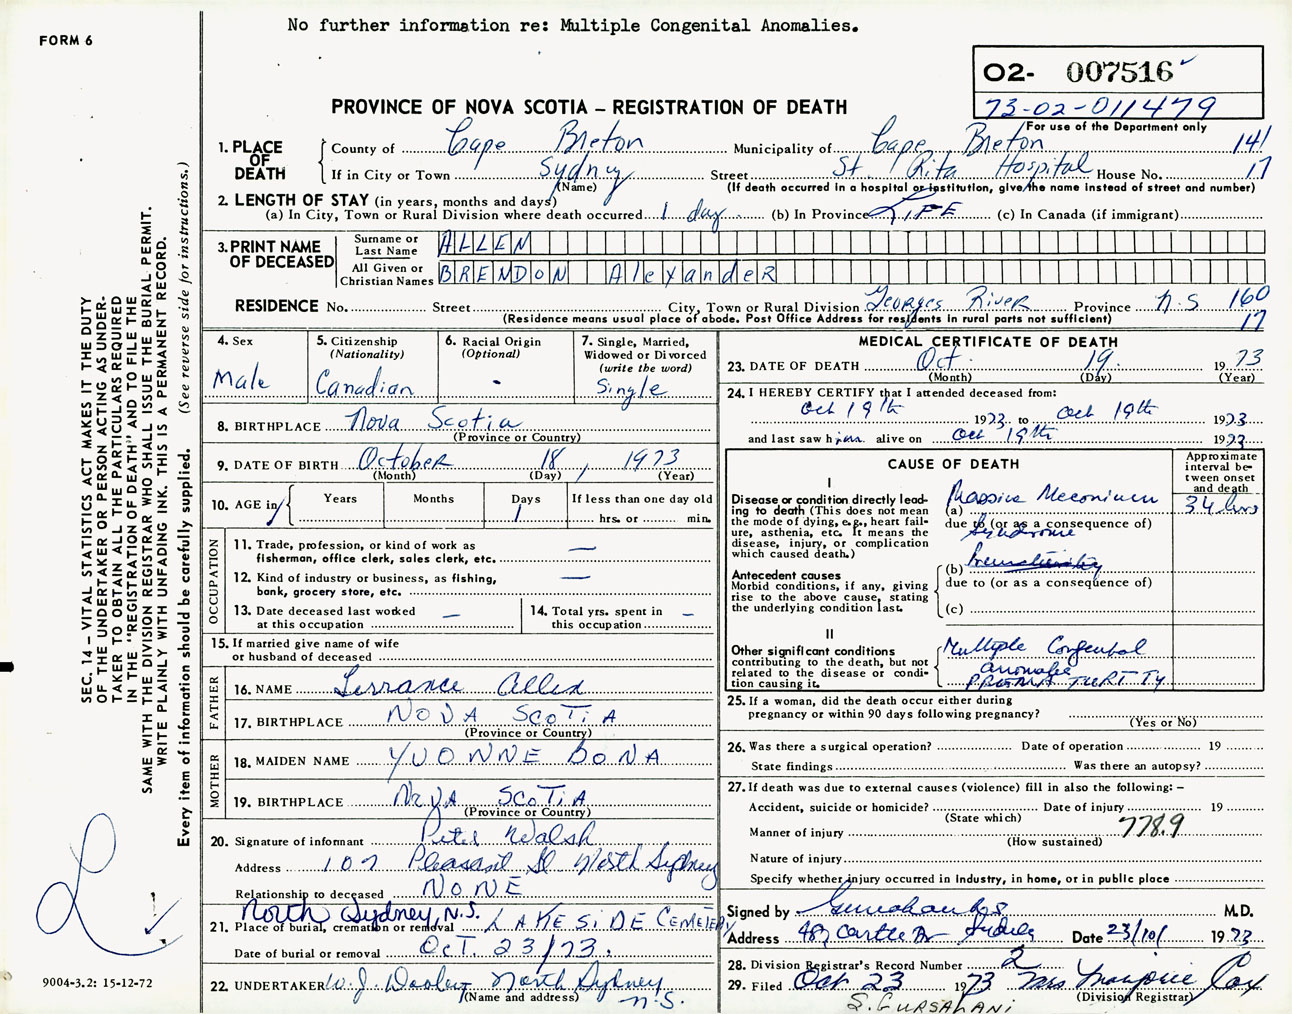 No further information re: Multiple Congenital Anomalies.
FORM 6
O2- 007516
73-02-011479
For use of the Department only
PROVINCE OF NOVA SCOTIA – REGISTRATION OF DEATH
1. PLACE OF DEATH
County of Cape Breton Municipality of Cape Breton 141
If in City or Town Sydney Street St. Rita Hospital House No. 17
(Name) (If death occurred in a hospital or institution, give the name instead of street and number)
2. LENGTH OF STAY (in years, months and days)
(a) In City, Town or Rural Division where death occurred 1 day (b) In Province LIFE (c) In Canada (if immigrant)
3. PRINT NAME OF DECEASED
Surname or Last Name ALLEN
All Given or Christian Names BRENDON AlexandeR
RESIDENCE No. Street City, Town or Rural Division Georges River Province N.S 160
(Residence means usual place of abode. Post Office Address for residents in rural parts not sufficient) 17
4. Sex
Male
5. Citizenship
(Nationality)
Canadian
6. Racial Origin
(Optional)
7. Single, Married,
Widowed or Divorced
(write the word)
Single
8. BIRTHPLACE Nova Scotia
(Province or Country)
9. DATE OF BIRTH October 18, 1973
(Month) (Day) (Year)
10. AGE in
Years Months Days If less than one day old
1 hrs. or min.
OCCUPATION
11. Trade, profession, or kind of work as
fisherman, office clerk, sales clerk, etc. —
12. Kind of industry or business, as fishing,
bank, grocery store, etc. —
13. Date deceased last worked
at this occupation —
14. Total yrs. spent in
this occupation –
15. If married give name of wife
or husband of deceased
FATHER
16. NAME Terrance Allen
17. BIRTHPLACE NOVA SCOTIA
(Province or Country)
MOTHER
18. MAIDEN NAME YVONNE BONA
19. BIRTHPLACE NOVA SCOTIA
(Province or Country)
20. Signature of informant Peter Walsh
Address 107 Pleasant St North Sydney
Relationship to deceased NONE
North Sydney, N.S.
21. Place of burial, cremation or removal LAKESIDE CEMETERY
Date of burial or removal OCT. 23/73.
22. UNDERTAKER W.J. Dooley North Sydney
(Name and address) N.S.
MEDICAL CERTIFICATE OF DEATH
23. DATE OF DEATH Oct. 19. 1973
(Month) (Day) (Year)
24. I HEREBY CERTIFY that I attended deceased from:
Oct 19th 1973 to Oct 19th 1973
and last saw him alive on Oct 19th 1973
CAUSE OF DEATH
Approximate
interval be-
tween onset
and death
I
Disease or condition directly lead-
ing to death (This does not mean
the mode of dying, e.g., heart fail-
ure, asthenia, etc. It means the
disease, injury, or complication
which caused death.)
(a) Massive Meconium 34 hrs
due to (or as a consequence of)
Syndrome
Antecedent causes
Morbid conditions, if any, giving
rise to the above cause, stating
the underlying condition last.
(b) Prematurity
due to (or as a consequence of)
(c)
II
Other significant conditions
contributing to the death, but not
related to the disease or condi-
tion causing it.
Multiple Congenital
anomalie
PREMATURITY
25. If a woman, did the death occur either during
pregnancy or within 90 days following pregnancy?
(Yes or No)
26. Was there a surgical operation? Date of operation 19
State findings Was there an autopsy?
27. If death was due to external causes (violence) fill in also the following: –
Accident, suicide or homicide? Date of injury 19
(State which)
Manner of injury 778.9
(How sustained)
Nature of injury
Specify whether injury occurred in industry, in home, or in public place
Signed by M.D.
Address Sydney Date 23/10/ 1973
28. Division Registrar's Record Number 2
29. Filed Oct 23 1973 Mrs Marjorie Cox
(Division Registrar)
S. GURSAHANI
SEC. 14 – VITAL STATISTICS ACT MAKES IT THE DUTY
OF THE UNDERTAKER OR PERSON ACTING AS UNDER-
TAKER TO OBTAIN ALL THE PARTICULARS REQUIRED
IN THE "REGISTRATION OF DEATH" AND TO FILE THE
SAME WITH THE DIVISION REGISTRAR WHO SHALL ISSUE THE BURIAL PERMIT.
WRITE PLAINLY WITH UNFADING INK. THIS IS A PERMANENT RECORD.
Every item of information should be carefully supplied. (See reverse side for instructions.)
9004-3.2: 15-12-72